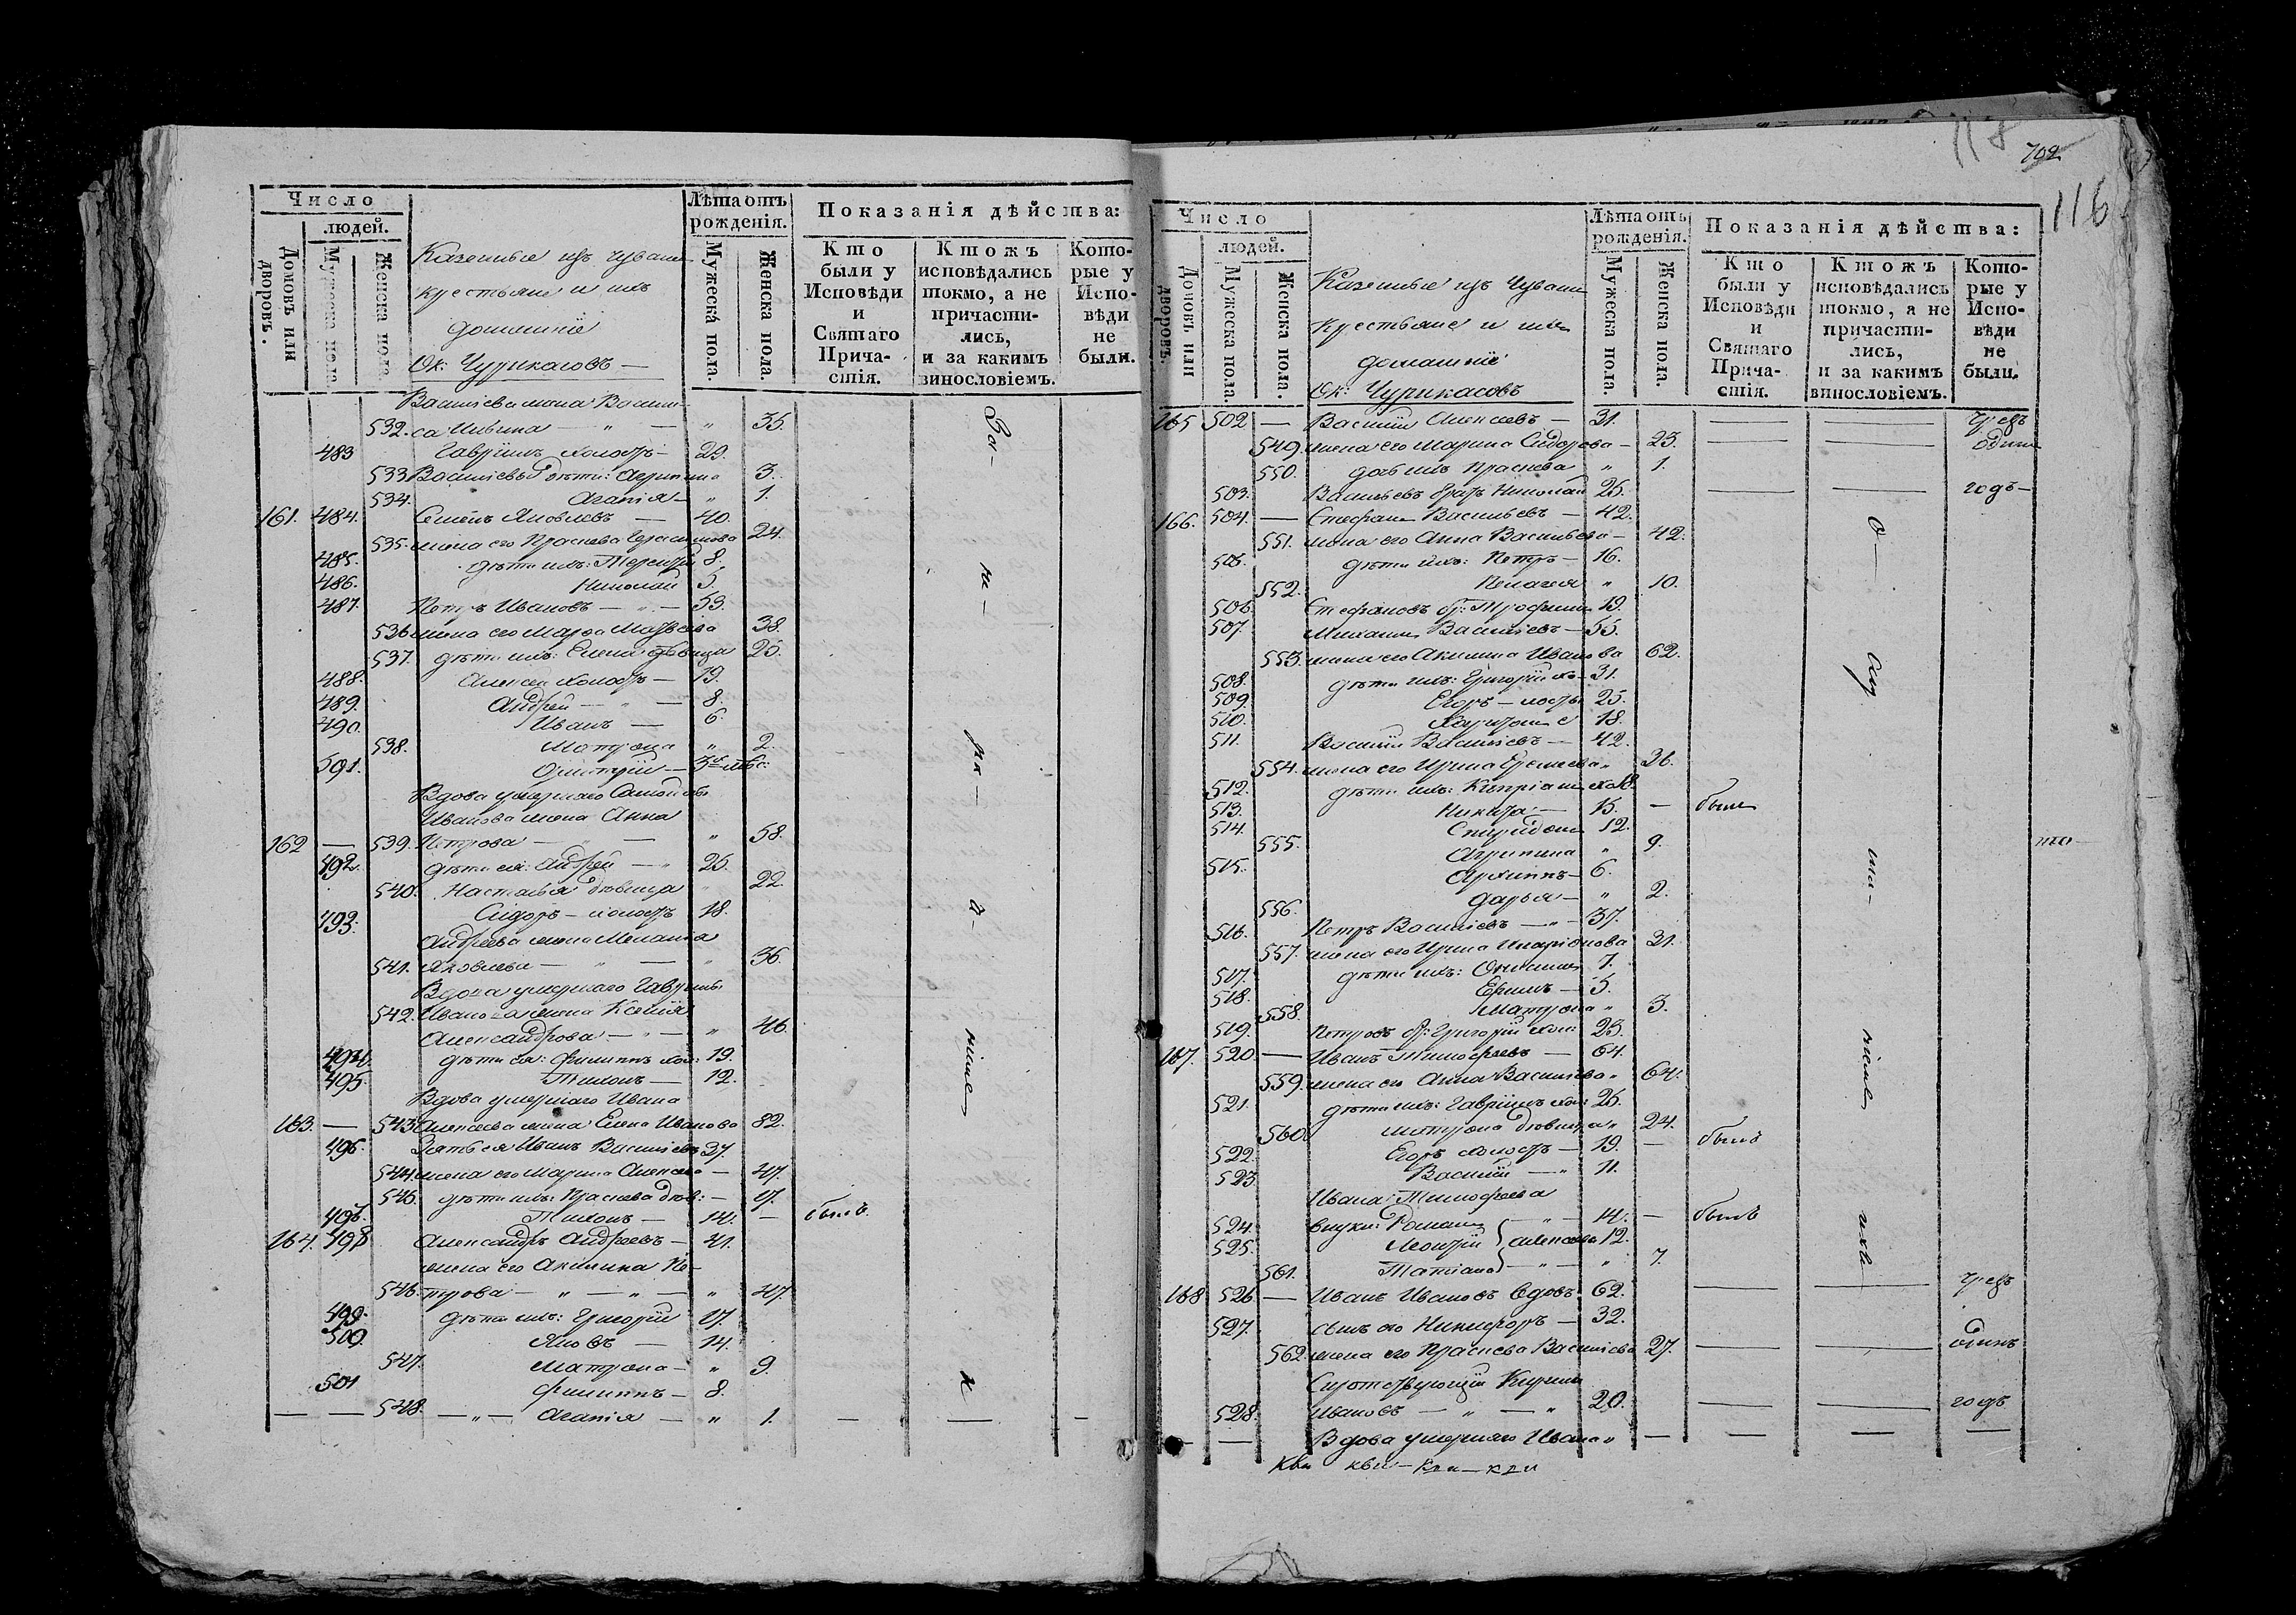 Число
людей.
Домовъ или дворовъ.
Мужеска пола.
Женска пола.
Казенные изъ чуваш
крестьяне и ихъ
домашніе
Ок: Чурикасовъ —
Лѣта отъ рожденія.
Мужеска пола.
Женска пола.
Показанія дѣйства:
Кто были у Исповѣди и Святаго Причастія.
Ктожъ исповѣдались токмо, а не причастились, и за какимъ винословіемъ.
Которые у Исповѣди не были.
Василіева жена Васили-
532. са — " — " 35.
483 Гавріилъ холостъ — 29.
533 Василіевы дѣти: Агрипина 3.
534. Агапія — " 1.
161. 484. Семенъ Яковлевъ — 40.
535. жена его Праскева Герасимова 24.
485. дѣти ихъ: Терентій 8.
486. Николай 5.
487. Петръ Ивановъ — " — 53.
536 жена его Марѳа Матвеева 38.
537. дѣти ихъ: Елена дѣвица 20.
488. Алексей холостъ — 19.
489. Андрей — " — 8.
490. Иванъ — 6.
538. Матрона " 2.
591. Димитрій —
Вдова умершаго
Иванова жена Анна
162 — 539. Петрова — — " 58.
492. дѣти ея: Андрей — " 25.
540. Настасья дѣвица " 22.
493. Сидоръ — холостъ 18.
Андреева жена Меланія
541. Яковлева — " — " 36.
Вдова умершаго Гавріила
542. Иванова жена Ксенія
Александрова — " — " 46.
494. дѣти ея: Филиппъ хол: 19.
495. Тихонъ — 12.
Вдова умершаго Ивана
163. — 543 Алексеева жена Елена Иванова 82.
496. Зять ея Иванъ Василіевъ 37.
544. жена его Марина Алексеева — 47.
545. дѣти ихъ: Праскева дѣв: — 17.
496. Тихонъ — 14. — былъ.
164. 498 Александръ Андреевъ — 41.
жена его Акилина Пе-
546. трова — " — " — " 47.
499. дѣти ихъ: Григорій 17.
500. Яковъ — 14.
547. Матрона — " 9.
501 Филиппъ — 8.
548. — " — Агапія — " 1. — — —
118
702
116
Число
людей.
Домовъ или дворовъ.
Мужеска пола.
Женска пола.
Казенные изъ Чуваш
Крестьяне и ихъ
домашніе
Ок: Чурикасовъ
Лѣта отъ рожденія.
Мужеска пола.
Женска пола.
Показанія дѣйства:
Кто были у Исповѣди и Святаго Причастія.
Ктожъ исповѣдались токмо, а не причастились, и за какимъ винословіемъ.
Которые у Исповѣди не были.
165 502 — Василій Алексеевъ — 31. — — чрезъ
549. жена его Марина Сидорова — 23. — — одинъ
550. дочь ихъ Праскева " 1.
503. Васильевъ братъ Николай 26. — — годъ —
166. 504. — Стефанъ Васильевъ — 42.
551. жена его Анна Васильева — 42.
505. дѣти ихъ: Петръ — 16.
552. Пелагея " 10.
506. Стефановъ бр: Трофимъ 19.
507. Михаилъ Василіевъ — 55.
553. жена его Акилина Иванова 62.
508. дѣти ихъ: Григорій хо- 31.
509. Егоръ — лосты 25.
510. Харитонъ 18.
511. Василій Василіевъ — 42.
554. жена его Ирина 36.
512. дѣти ихъ: Кипріанъ хо 18.
513. Никита — 15. — былъ
514. Спиридонъ 12.
555. Агрипина " 9.
515. Архиппъ — 6.
556. Дарья — " 2.
516. Петръ Василіевъ — " — 37.
557. жена его Ирина Иларіонова 31.
517. дѣти ихъ: 7.
518. Ефимъ — 5.
558. Матрона " 3.
519. Петровъ бр: Григорій хол: 23.
167. 520. — Иванъ Тимофеевъ — 64.
559. жена его Анна Василіева " 64.
521. дѣти ихъ: Гавріилъ хол: 26.
560 Матрона дѣвица " 24.
522. Егоръ холостъ — 19. — былъ
523 Василій — " 11.
Ивана Тимофеева
524. внуки: Романъ — " — 14. — былъ
525. Леонтій Алексеевы 12.
561. Татіана — " — " 7.
168 526 — Иванъ Ивановъ вдовъ 62. — — чрезъ
527. сынъ его Никифоръ — 32.
562. жена его Праскева Василіева 27. — — одинъ
Сиротствующій Кирилъ
528. Ивановъ — " — " 20. — — годъ
— Вдова умершаго Ивана " — — — —